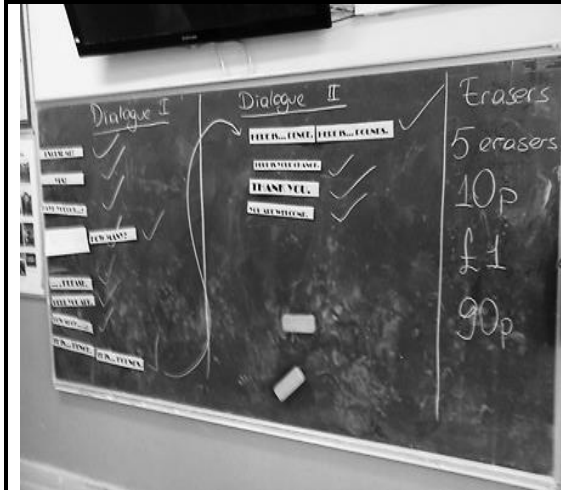 Dialogue I
EXCUSE ME!
YES?
HOW MANY?
... , PLEASE.
HERE YOU ARE.
IT IS... PENCE. IT IS... POUNDS.
Dialogue II
HERE IS... PENCE. HERE IS... POUNDS.
HERE IS YOUR CHANGE.
THANK YOU.
YOU ARE WELCOME.
Erasers
5 erasers
10p
£1
90p